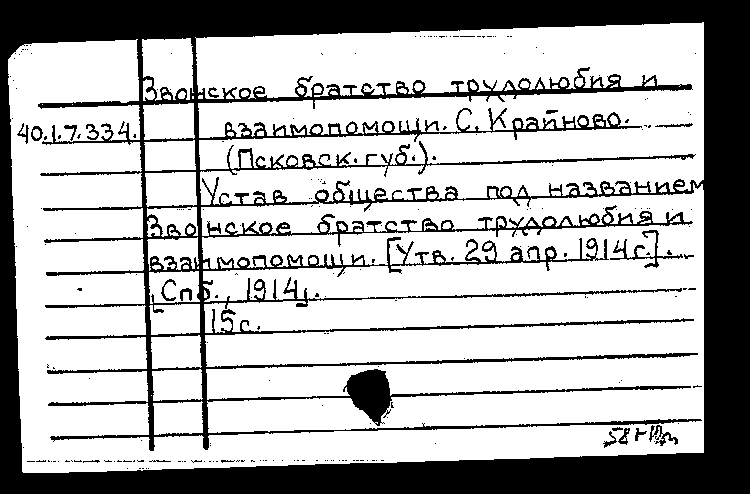 Звонское братство трудолюбия и
40.1.7.334. взаимопомощи. С. Крайново.
(Псковск. губ.).
Устав общества под названием
Звонское братство трудолюбия и
взаимопомощи. [Утв. 29 апр. 1914 г.].
[Спб., 1914].
15 с.